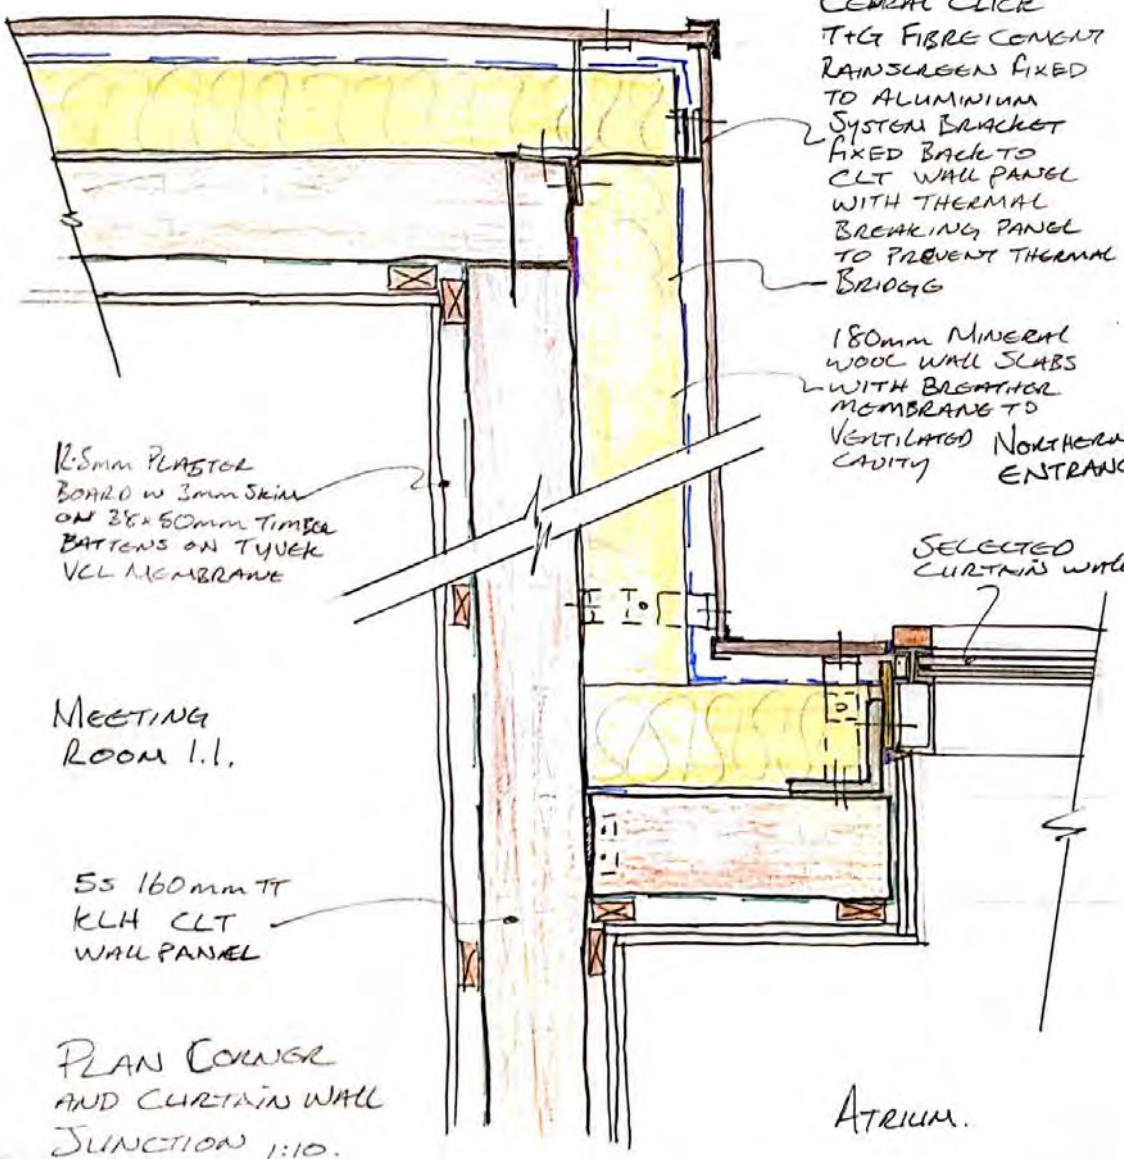 CEDRAL CLICK
T+G FIBRE CEMENT
RAINSCREEN FIXED
TO ALUMINIUM
SYSTEM BRACKET
FIXED BACK TO
CLT WALL PANEL
WITH THERMAL
BREAKING PANEL
TO PREVENT THERMAL
BRIDGE
180mm MINERAL
WOOL WALL SLABS
WITH BREATHER
MEMBRANE TO
VENTILATED
CAVITY
NORTHERN
ENTRANC
12.5mm PLASTER
BOARD W 3mm SKIM
ON 38x50mm TIMBER
BATTENS ON TYVEK
VCL MEMBRANE
SELECTED
CURTAIN WALL
MEETING
ROOM 1.1.
5s 160mm TT
KLH CLT
WALL PANEL
PLAN CORNER
AND CURTAIN WALL
JUNCTION 1:10.
ATRIUM.